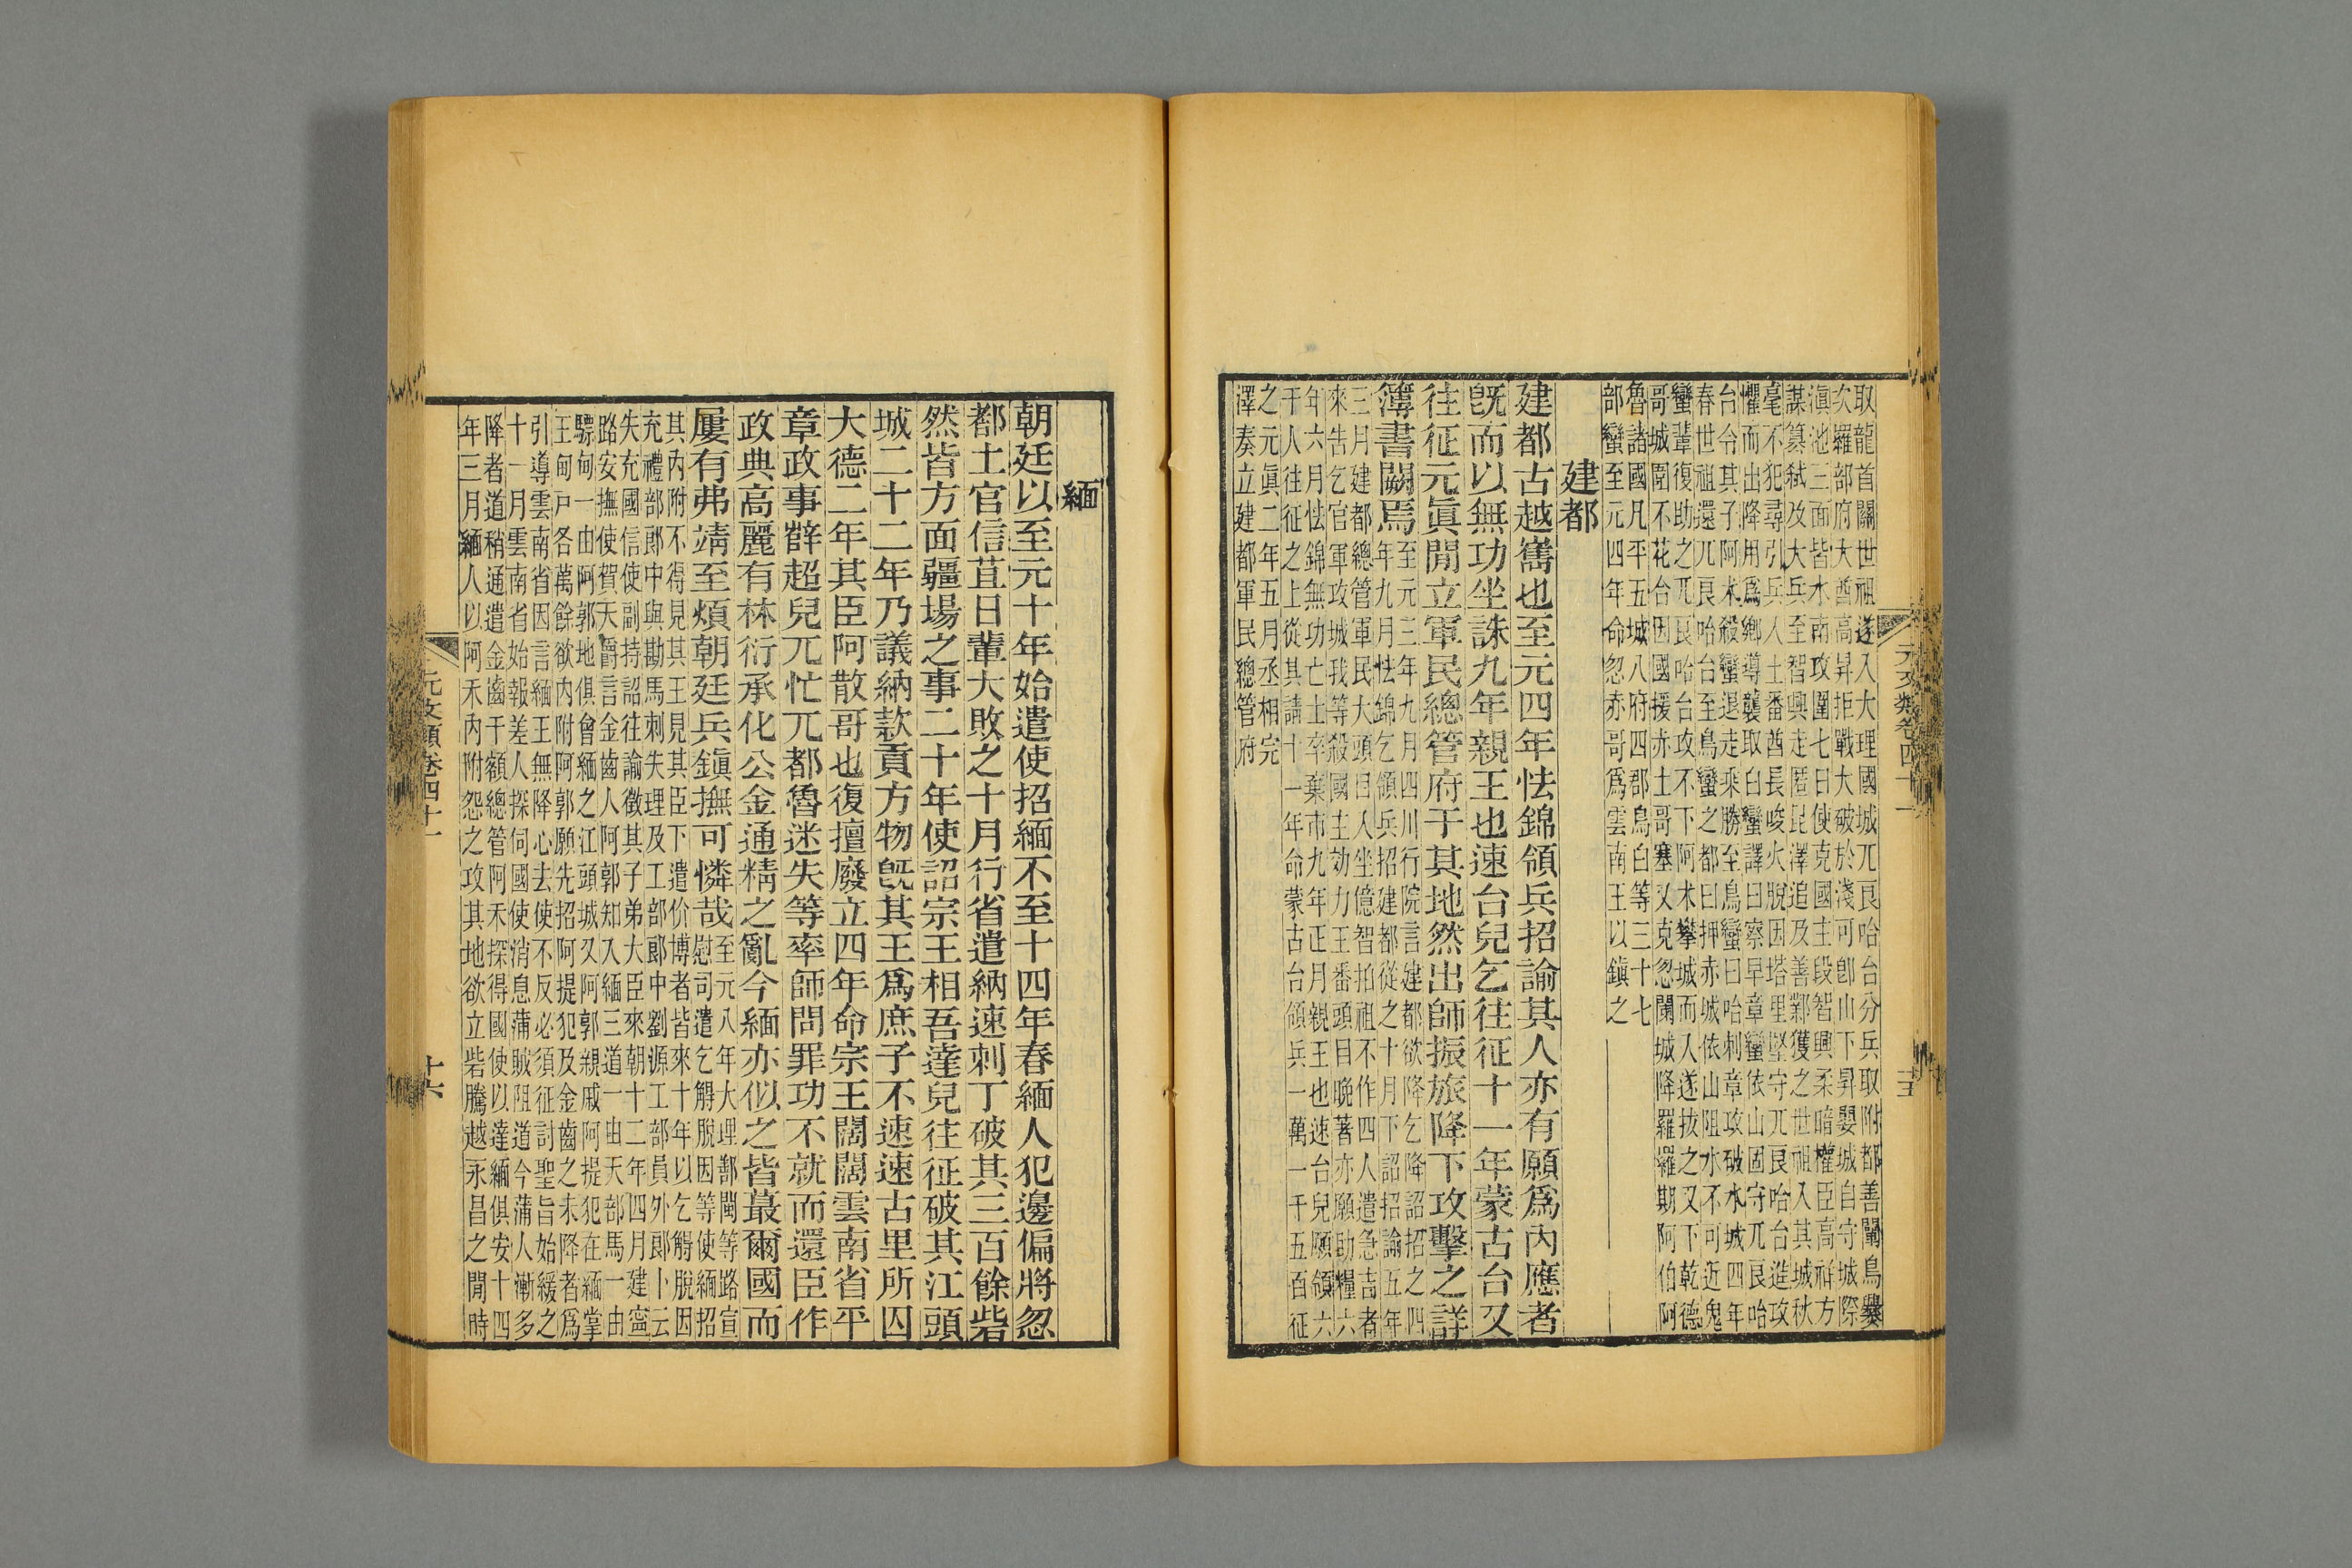 取龍首關世祖遂入大理國城兀良哈台分兵取附都善闡烏爨
次羅部府大酋高昇拒戰大破於淺可卽山下昇嬰城自守城際
滇池三面皆水南攻圍七日使克國主段智興柔暗權臣高祥方
謀簒弒及大兵至智興走匿昆澤追及善鄯獲之世祖入其城秋
毫不犯尋引兵入土番酋長唆火脫因塔里堅守兀良哈台進攻
懼而出降用爲鄉導襲取白蠻譯曰察早章蠻依山固守兀良哈
台令其子阿朮殺蠻退走乘勝至烏蠻曰哈刺章攻破水城四年
春世祖還兀良哈台至烏蠻之都曰押赤城依山阻水不可近鬼
蠻輩復助之兀良哈台攻不下阿朮攀城而入遂拔之又下乾德
哥城圍不花台因國援赤土哥塞又克忽闌城降羅羅期阿伯阿
魯諸國凡平五城八府四郡烏白等三十七
部蠻至元四年命忽赤哥爲雲南王以鎮之
建都
建都古越巂也至元四年怯錦領兵招諭其人亦有願爲內應者
旣而以無功坐誅九年親王也速台兒乞往征十一年蒙古台又
往征元眞閒立軍民總管府于其地然出師振旅降下攻擊之詳
簿書闕焉
至元三年九月四川行院言建都欲降乞降詔招之四
年九月怯錦乞領兵招建都從之十月下詔招諭五年
三月建都總管軍民大頭目入坐億智拍祖不作四人遣急吉者
來告乞官軍攻城我等殺國主効力王番頭目晚著亦願助糧六
年六月怯錦無功亡士卒棄市九年正月親王也速台兒願領六
千人往征之上從其請十一年命蒙古台領兵一萬一千五百征
之元眞二年五月丞相完
澤奏立建都軍民總管府
元文類卷四十一
十五
緬
朝廷以至元十年始遣使招緬不至十四年春緬人犯邊偏將忽
都土官信苴日輩大敗之十月行省遣納速刺丁破其三百餘砦
然皆方面疆埸之事二十年使詔宗王相吾達兒往征破其江頭
城二十二年乃議納款貢方物旣其王爲庶子不速速古里所囚
大德二年其臣阿散哥也復擅廢立四年命宗王闊闊雲南省平
章政事薛超兒兀忙兀都魯迷失等率師問罪功不就而還臣作
政典高麗有林衍承化公金通精之亂今緬亦似之皆蕞爾國而
屢有弗靖至煩朝廷兵鎭撫可憐哉
至元八年大理鄯闡等路宣
慰司遣乞䚟脫因等使緬招
其內附不得見其王見其臣下遣价博者皆來十年以乞䚟脫因
充禮部郎中與勘馬刺失理及工部郎中劉源工部員外郎卜云
失充國信使副持詔往諭徵其子弟大臣來朝十二年四月建寧
路安撫使賀天爵言金齒人阿郭知入緬三道一由天部馬一由
驃甸一由阿郭地俱曾緬之江頭城又阿郭親戚阿提犯在緬掌
王甸戶各萬餘欲內附阿郭願先招阿提犯及金齒之未降者爲
引導雲南省因言緬王無降心去使不反必須征討聖旨始緩之
十一月雲南省始報差人探伺國使消息蒲賊阻道今蒲人漸多
降者道稍通遣金齒千額總管阿禾探得國使以達緬俱安十四
年三月緬人以阿禾內附怨之攻其地欲立砦騰越永昌之閒時
元文類卷四十一
十六